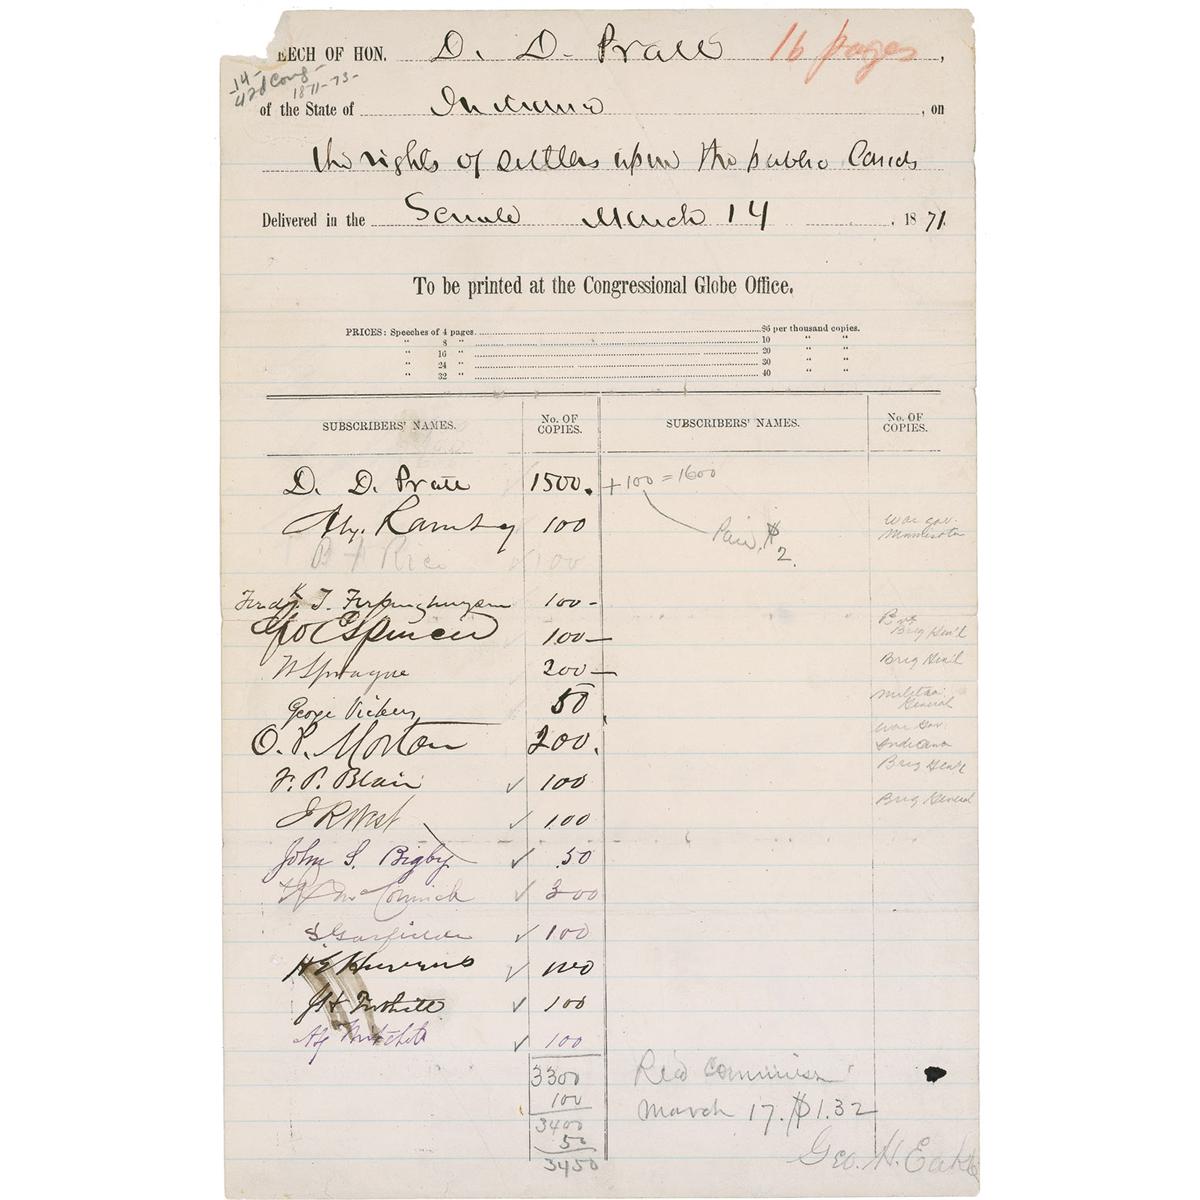 EECH OF HON. D. D. Pratt 16 pages,
14-
42d Cong-
1871-73-
of the State of Indiana, on
the rights of settlers upon the public Lands
Delivered in the Senate March 14, 1871.
To be printed at the Congressional Globe Office.
PRICES: Speeches of 4 pages. $6 per thousand copies.
" 8 " 10 " "
" 16 " 20 " "
" 24 " 30 " "
" 32 " 40 " "
SUBSCRIBERS' NAMES. No. OF COPIES. SUBSCRIBERS' NAMES. No. OF COPIES.
D. D. Pratt 1500. +100 = 1600
Alex. Ramsey 100 Paid. $2. War gov. Minnesota
B F Rice 100
Fredk T. Frelinghuysen 100-
Geo E Spencer 100- Bvt Brig Gen'l
W Sprague 200- Brig Gen'l
George Vickers 50 General
O. P. Morton 200. War Gov. Indiana
F. P. Blair ✓ 100 Brig Gen'l
J R West ✓ 100 Brig General
John S. Bigby ✓ 50
McCormick ✓ 300
S. Garfielde ✓ 100
✓ 100
✓ 100
✓ 100
3300
100
3400
50
3450
Rec'd Commission
March 17. $1.32
Geo. H.